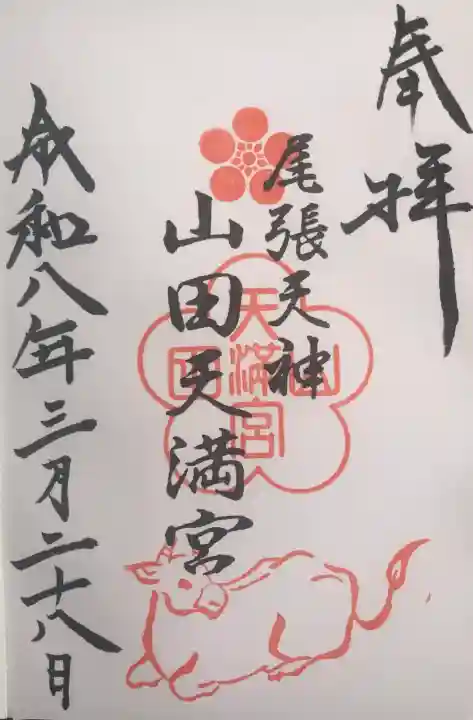 奉拝
尾張天神
山田天満宮
山田
天満宮
令和八年三月二十八日